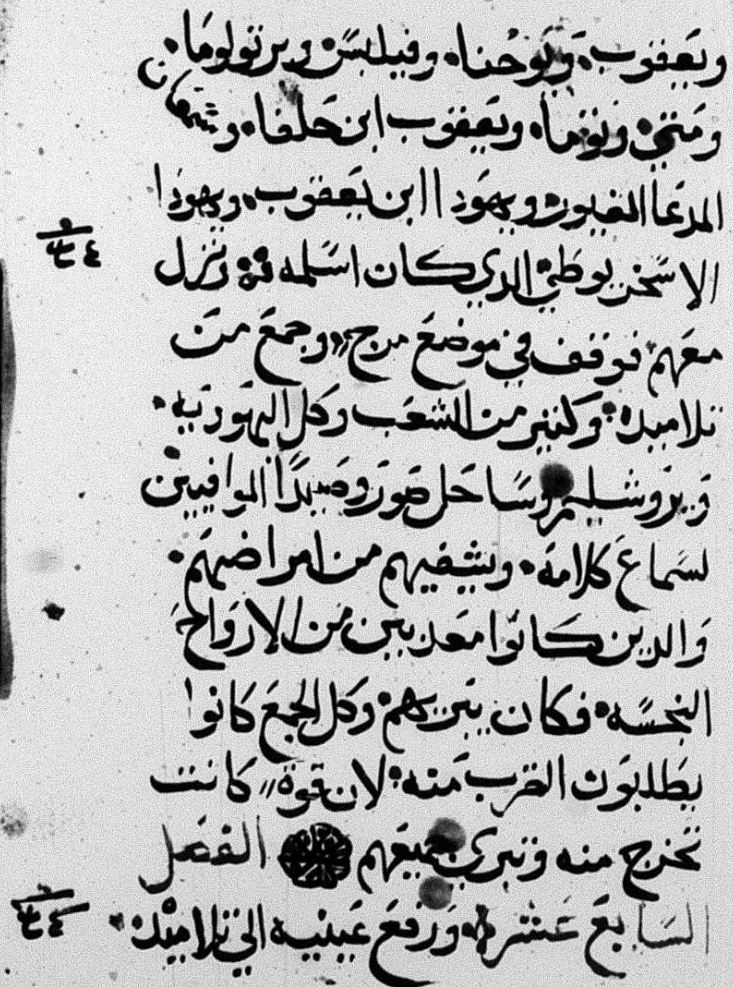 ويعقوب، ويوحنا، وفيلبس وبرتولوما،
ومتى وتوما، ويعقوب ابن حلفا، وشمعان
المدعا الغيور ويهودا ابن يعقوب، ويهودا
الاسخريوطي الدي كان اسلمه، ونزل
معهم فوقف في موضع مرج، وجمع من
تلاميده وكثير من الشعب وكل اليهوديه،
ويروشليم وساحل صور وصيدا الوافيين
لسماع كلامه، ويشفيهم من امراضهم،
والدين كانوا معدبين من الارواح
النجسه، فكان يبريهم، وكل الجمع كانوا
يطلبون القرب منه، لان قوة كانت
تخرج منه وتبري جميعهم الفصل
السابع عشر، ورفع عينيه الي تلاميده،